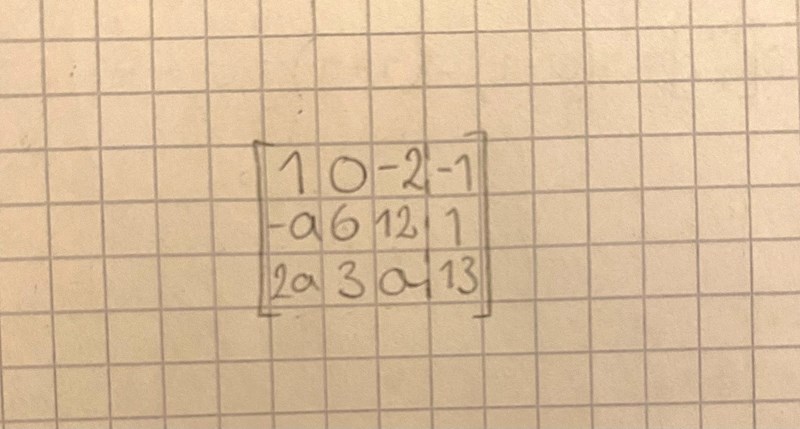 1 0 -2 -1
-a 6 12 1
2a 3 a 13